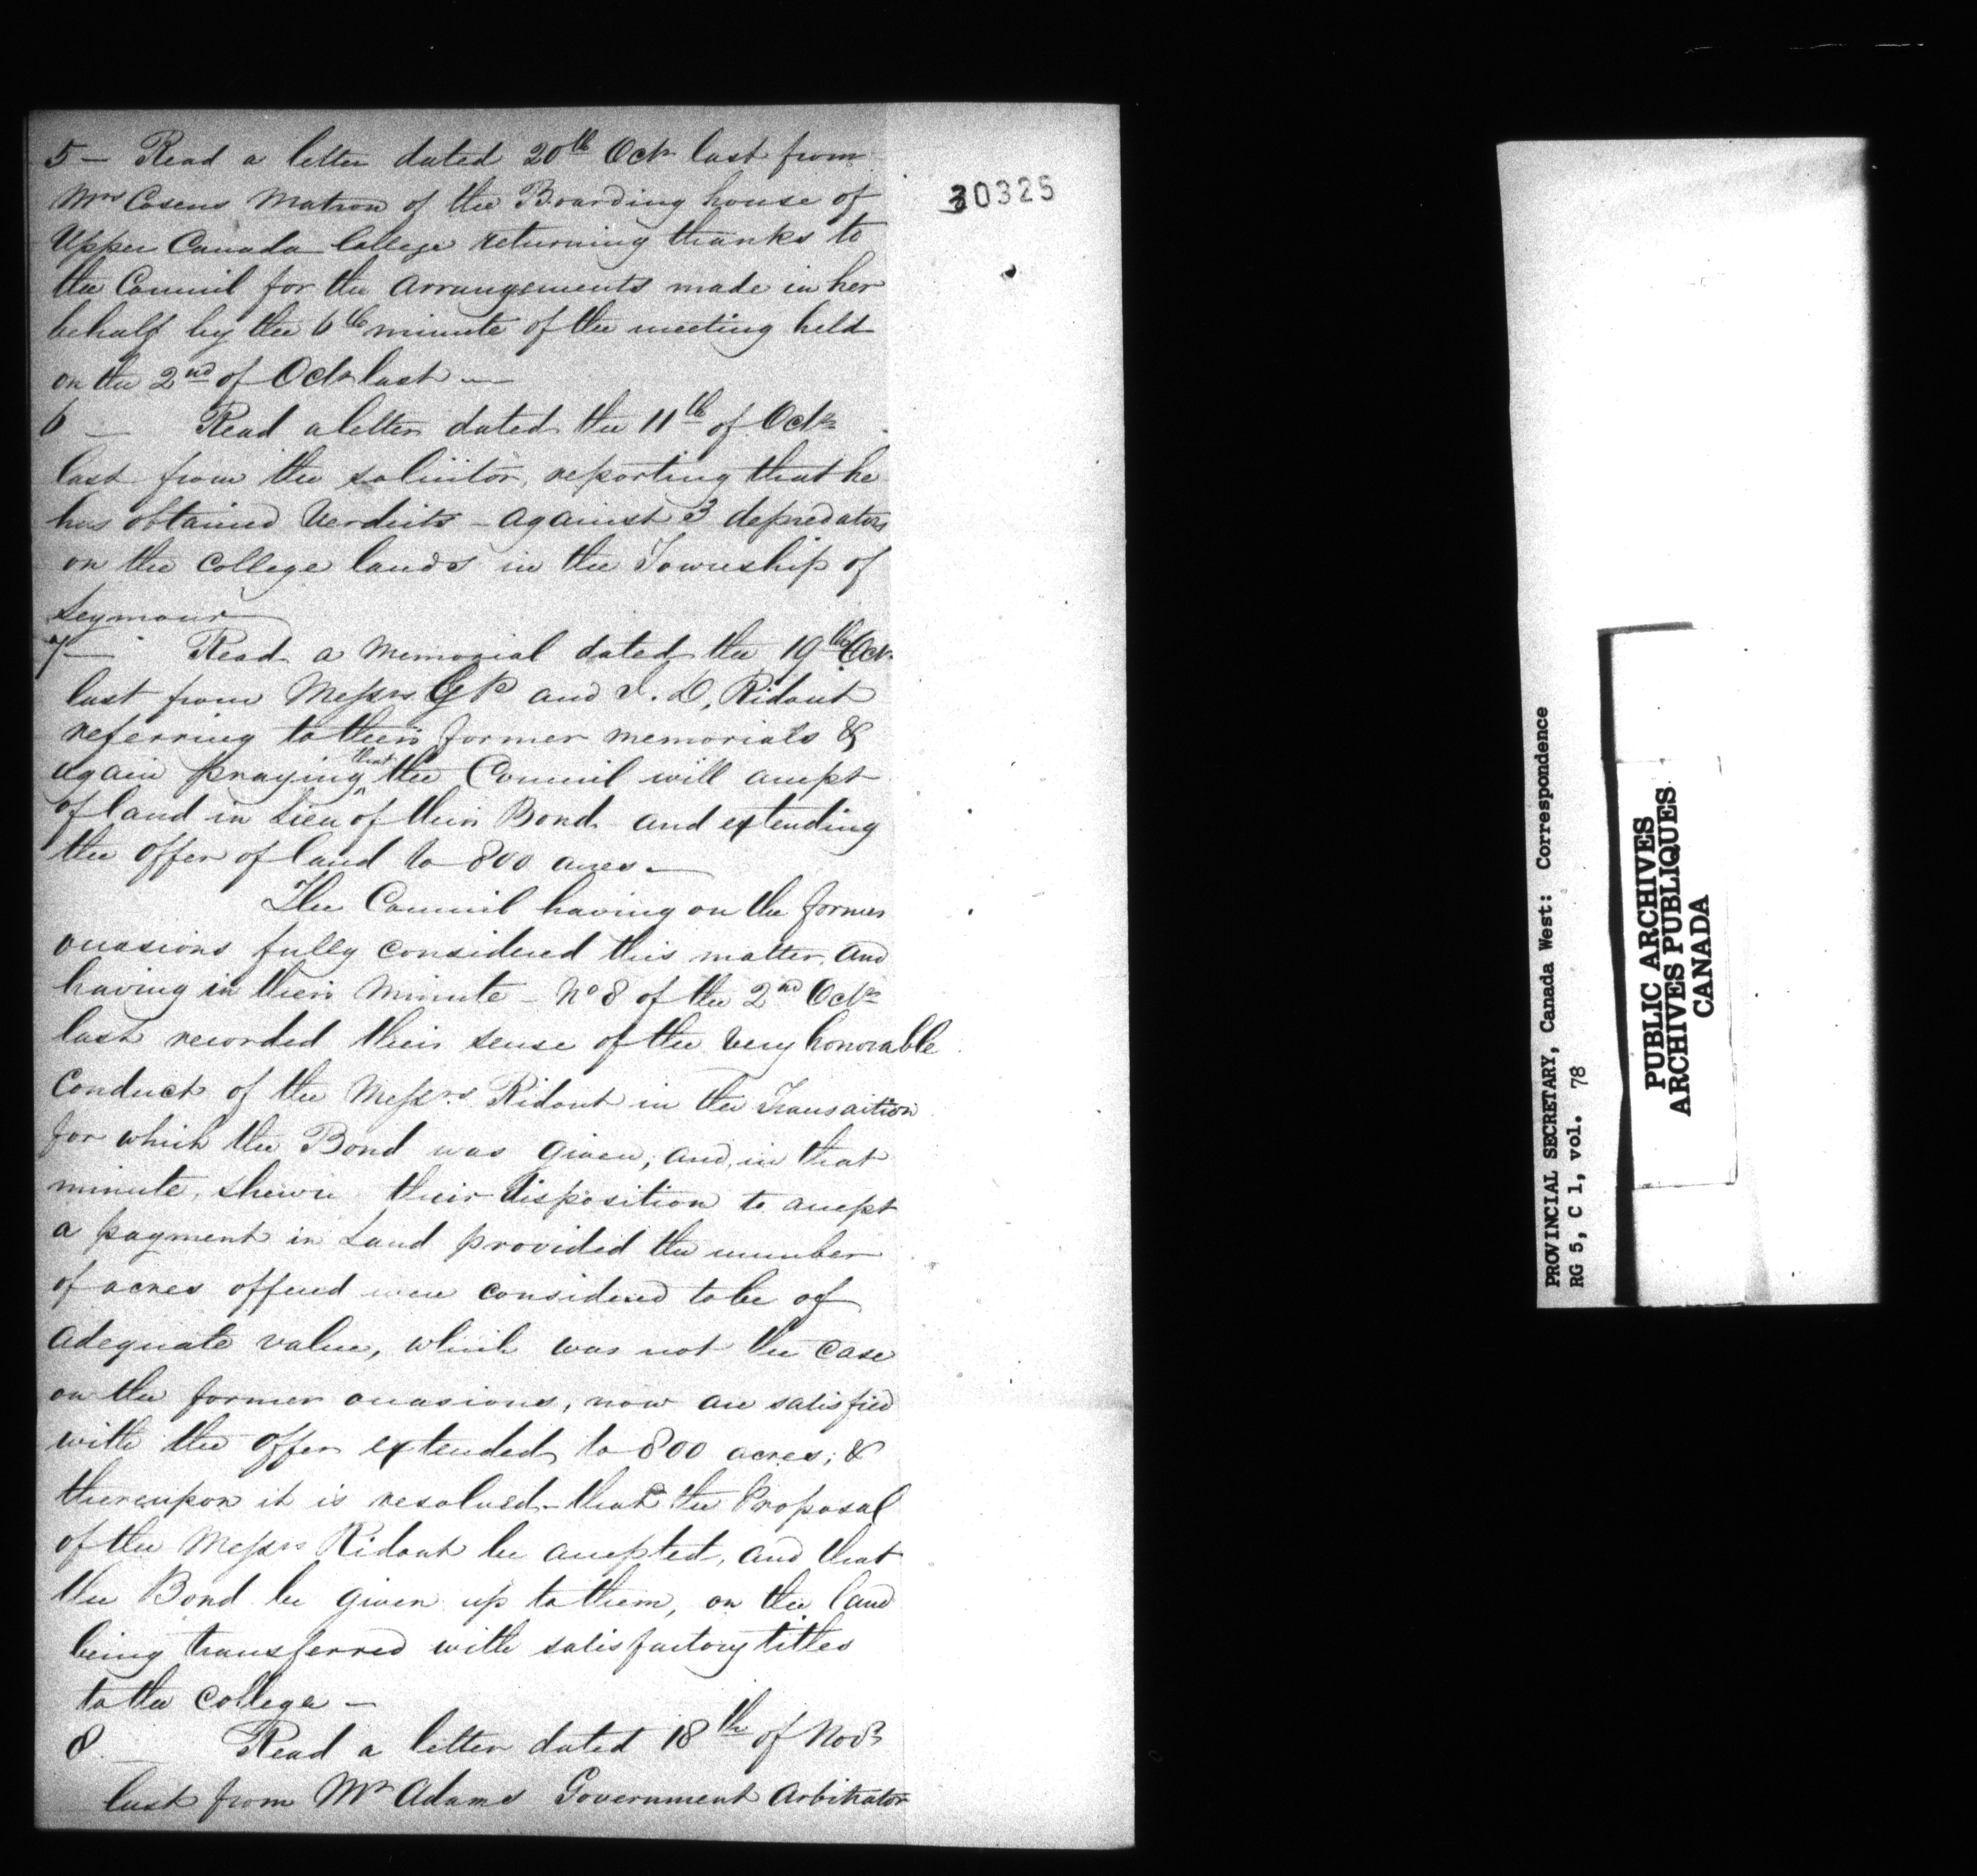 5 — Read a letter dated 20th Octr last from
Mrs Cosens Matron of the Boarding house of
Upper Canada College returning thanks to
the Council for the arrangements made in her
behalf by the 6th minute of the meeting held
on the 2nd of Octr last —
6 — Read a letter dated the 11th of Octr
last from the solicitor, reporting that he
has obtained Verdicts – against 3 depredators
on the College lands in the Township of
Seymour
7 — Read a Memorial dated the 19th Octr
last from Messrs G P and J. D, Ridout
referring to their former memorials &
again praying that the Council will accept
of land in lieu of their Bond and extending
the offer of land to 800 acres —
The Council having on the former
occasions fully considered this matter, and
having in their Minute – No 8 of the 2nd Octr
last recorded their sense of the very honorable
Conduct of the Messrs Ridout in the Transaction
for which the Bond was given, and, in that
minute, shewn their disposition to accept
a payment in Land provided the number
of acres offered were considered to be of
adequate value, which was not the case
on the former occasions, now are satisfied
with the offer extended to 800 acres; &
thereupon it is resolved – that the Proposal
of the Messrs Ridout be accepted, and that
the Bond be given up to them, on the land
being transferred with satisfactory titles
to the College —
8 — Read a letter dated 18th of Novr
last from Mr Adams Government Arbitrator
30325
PROVINCIAL SECRETARY, Canada West: Correspondence
RG 5, C 1, vol. 78
PUBLIC ARCHIVES
ARCHIVES PUBLIQUES
CANADA